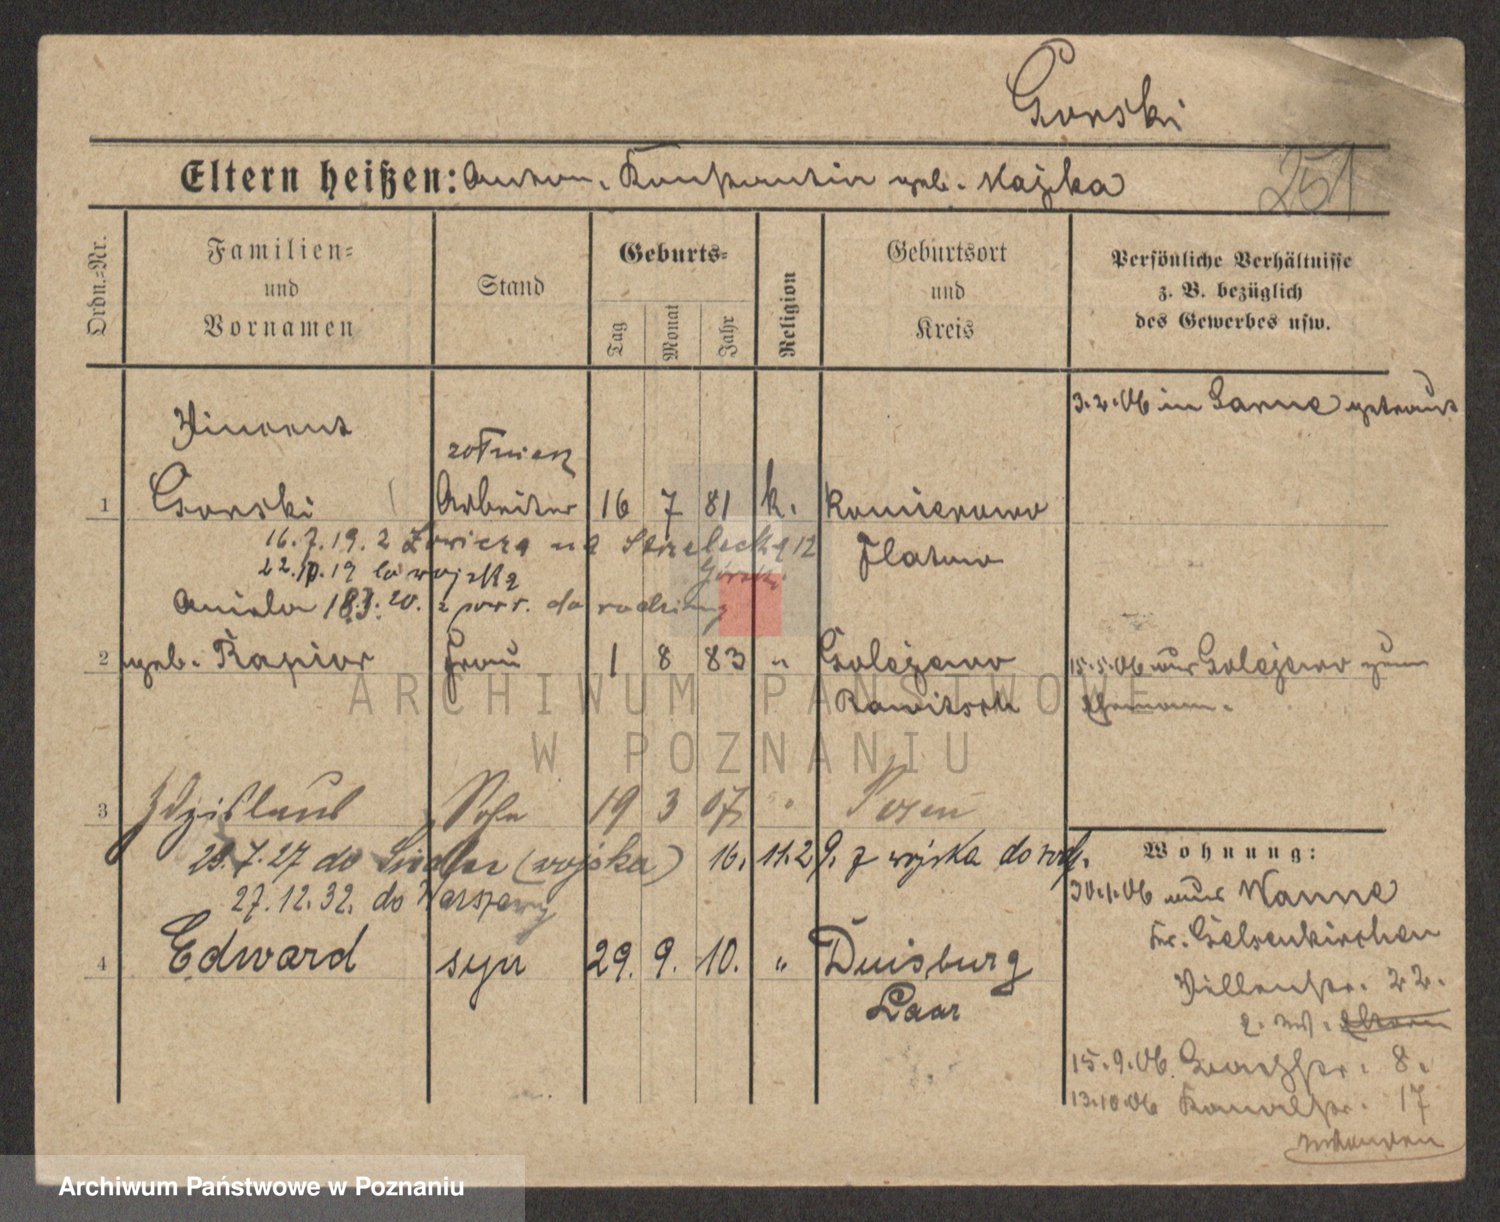 Gorski
Eltern heißen: Anton, Konstantin geb. Majzka
251
Ordn.-Nr.
Familien-
und
Vornamen
Stand
Geburts-
Tag
Monat
Jahr
Religion
Geburtsort
und
Kreis
Persönliche Verhältnisse
z. B. bezüglich
des Gewerbes usw.
3.2.06 in Sarne getraut
Vincent
żołnierz
1 Gorski Arbeiter 16 7 81 k. Komierowo
Flatow
16.7.19. z Żóricza na Strzelecka 12
22.10.19 do wojska
Górski
Aniela 18.3.20. z powr. do rodziny
2 geb. Rapior Frau 1 8 83 " Golejewo
Rawitsch
15.5.06 aus Golejewo zum
Ehemann.
3 Zdzislaus Sohn 19 3 07 " Posen
23.7.27 do Siedlec (wojska) 16.11.29. z wojska do rodz.
27.12.32. do Warszawy
4 Edward syn 29. 9. 10. " Duisburg
Laar
Wohnung:
30.1.06 aus Wanne
Kr. Gelsenkirchen
Villenstr. 22.
15.9.06. 8.
13.10.06 Kanalstr. 17
ARCHIWUM PAŃSTWOWE
W POZNANIU
Archiwum Państwowe w Poznaniu